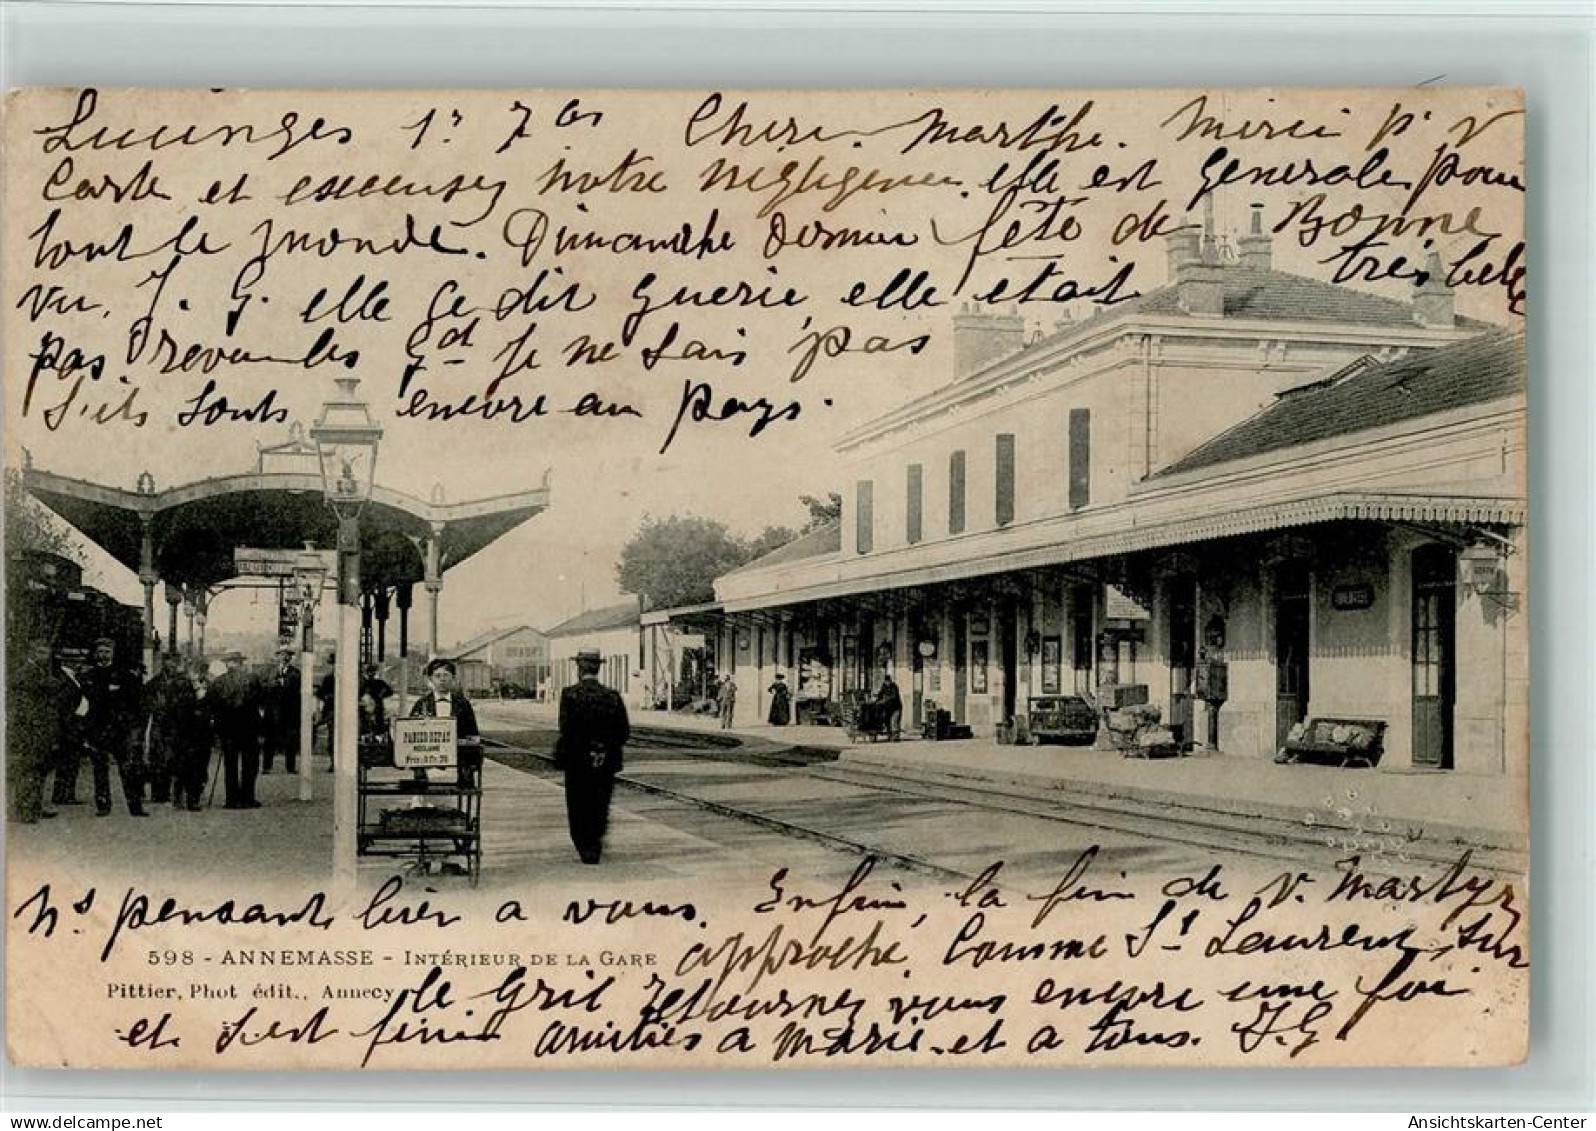 Lucinges 1r 7br Chère Marthe. Merci pr v
Carte et excusez notre négligence. elle est Generale pour
tout le monde. Dimanche dernier fête de Bonne
vu. J. G. elle se dit Guerie, elle était très belle
pas revu les Gd Je ne sais pas
s'ils sonts encore au pays.
PANIER REPAS
ns pensant bien a vous. Enfin, la fin de v. Martyr
598 - ANNEMASSE - INTÉRIEUR DE LA GARE approche. Comme St Laurent sur
Pittier, Phot édit., Annecy le Gril retournez vous encore une foi
et s'est fini amitiés a Marie et a tous. J. G
AnsichtsKarten-Center